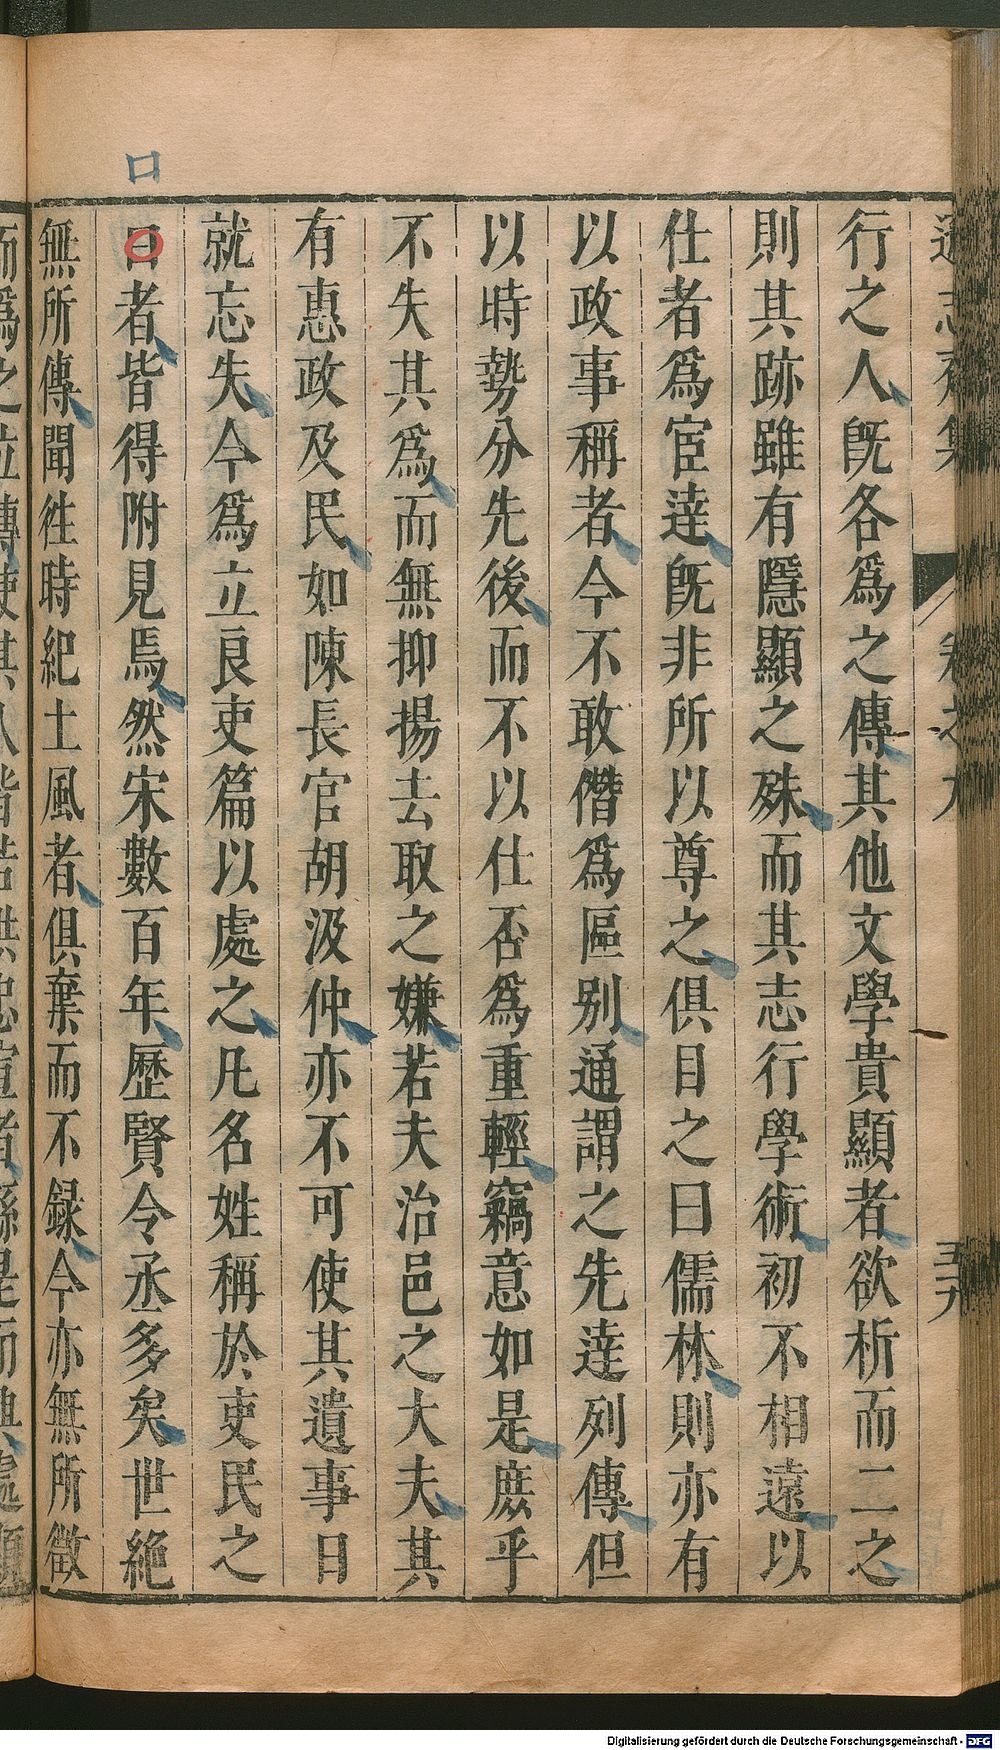 行之人既各爲之傳其他文學貴顯者欲析而二之
則其跡雖有隱顯之殊而其志行學術初不相遠以
仕者爲宦達既非所以尊之俱目之曰儒林則亦有
以政事稱者今不敢僭爲區别通謂之先達列傳但
以時勢分先後而不以仕否爲重輕竊意如是庶乎
不失其爲而無抑揚去取之嫌若夫治邑之大夫其
有惠政及民如陳長官胡汲仲亦不可使其遺事日
就忘失今爲立良吏篇以處之凡名姓稱於吏民之
口
曰者皆得附見焉然宋數百年歷賢令丞多矣世絶
無所傳聞徃時紀土風者俱棄而不録今亦無所徵
Digitalisierung gefördert durch die Deutsche Forschungsgemeinschaft - DFG